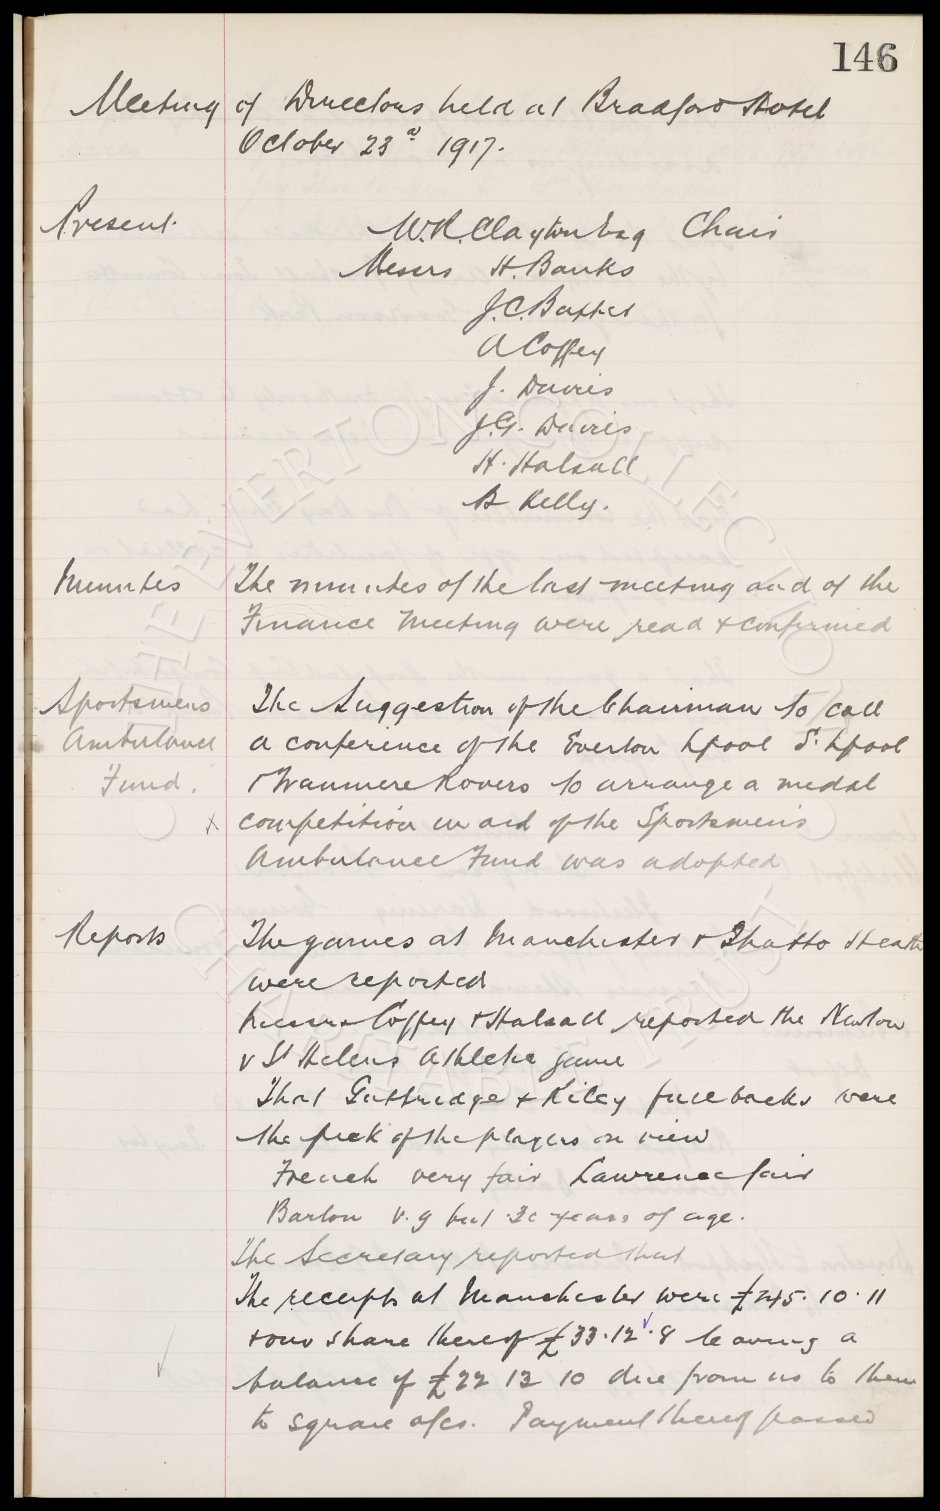 146
Meeting of Directors held at Bradford Hotel
October 23rd 1917.
Present. W.R. Clayton Esq Chair
Messrs H. Banks
J.C. Baxter
A Coffey
J. Davies
J.G. Davies
H. Halsall
B Kelly.
Minutes The minutes of the last meeting and of the
Finance Meeting were read & confirmed
Sportsmens The Suggestion of the Chairman to call
Ambulance a conference of the Everton Lpool S. Lpool
Fund. & Tranmere Rovers to arrange a medal
x competition in aid of the Sportsmen's
Ambulance Fund was adopted
Reports The games at Manchester & Thatto Heath
were reported
Messrs Coffey & Halsall reported the Newton
v St Helens Athletic game
That Guttridge & Kiley full backs were
the pick of the players on view
French very fair Lawrence fair
Barton v.g but 30 years of age.
The Secretary reported that
The receipts at Manchester were £245.10.11
& our share thereof £33.12.8 leaving a
balance of £22 13 10 due from us to them
to square a/cs. Payment thereof passed
THE EVERTON COLLECTION
CHARITABLE TRUST